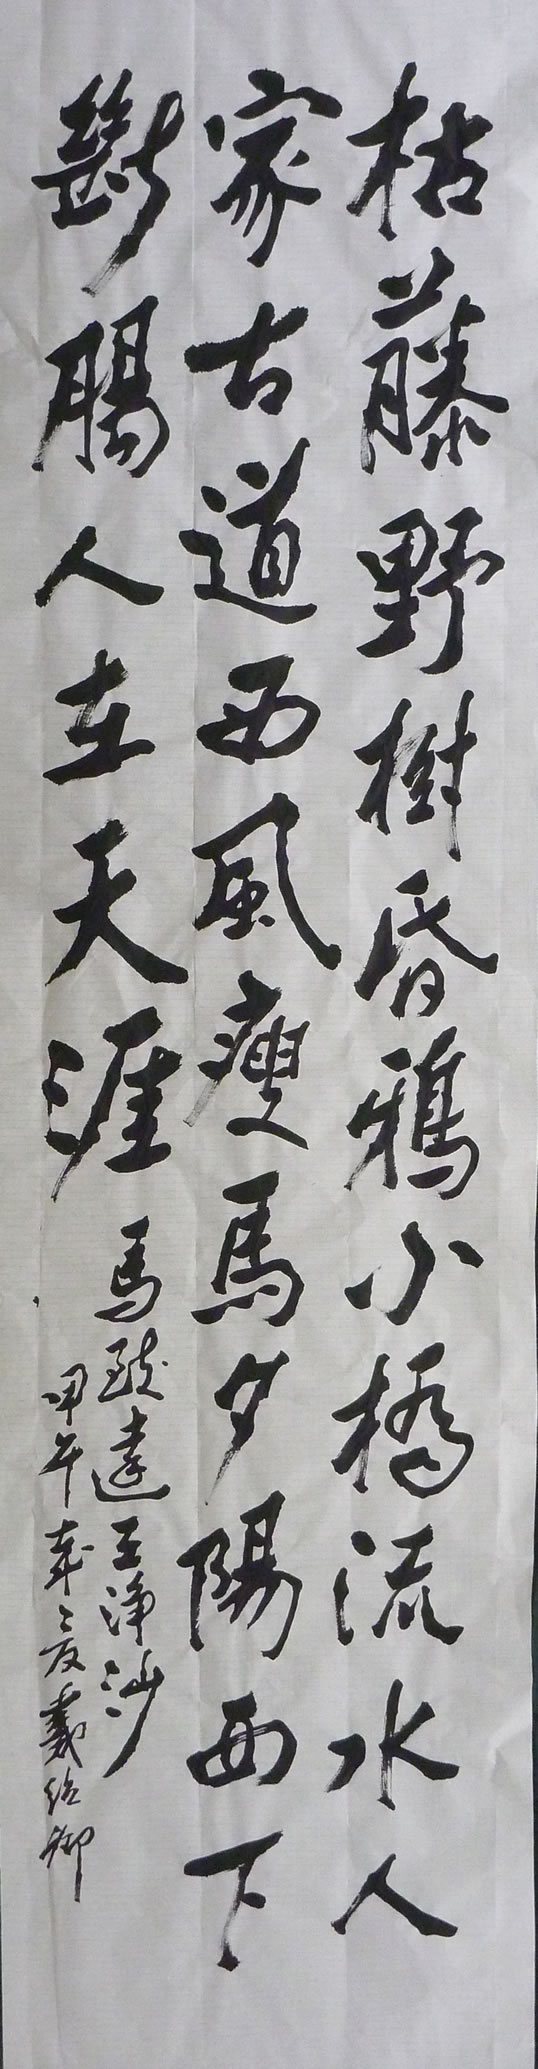 枯藤野樹昏鴉小橋流水人
家古道西風瘦馬夕陽西下
斷腸人在天涯
馬致遠天淨沙
甲午年之夏戴紹卿